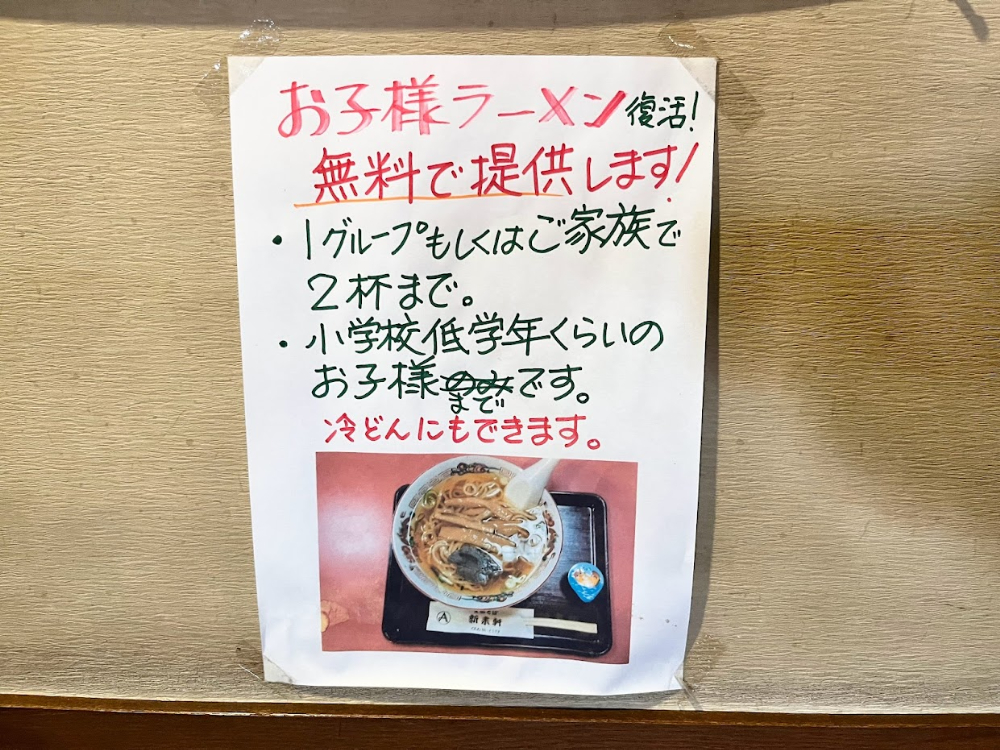 お子様ラーメン復活!
無料で提供します!
・1グループもしくはご家族で
2杯まで。
・小学校低学年くらいの
お子様のみです。
まで
冷どんにもできます。
A
新来軒